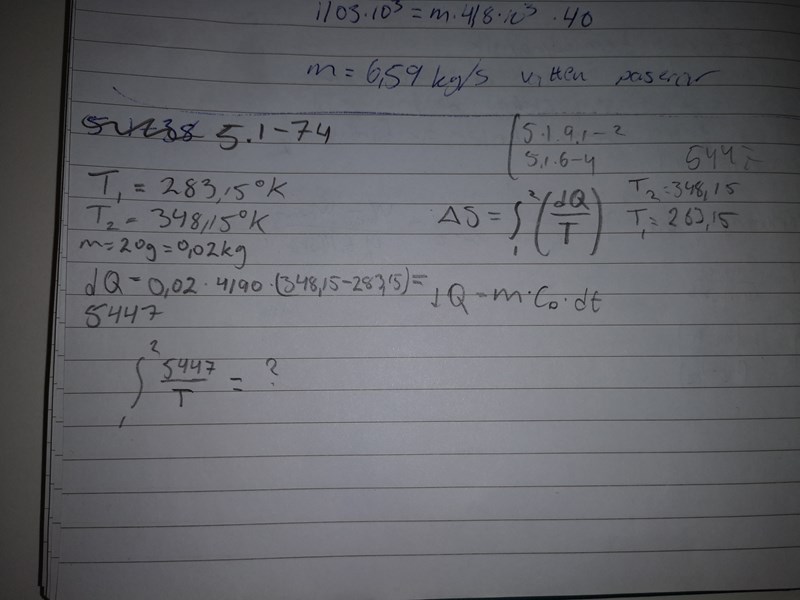 1103·10³ = m·4,18·10³ · 40
m = 6,59 kg/s vatten paserar
5.1-74
5.1.9.1-2
5.1.6-4
T₁ = 283,15°K
T₂ = 348,15°K
m=20g=0,02kg
ΔS = ∫₁² (dQ/T)
T₂=348,15
T₁=263,15
dQ=0,02·4190·(348,15-283,15)=
5447
dQ=m·C₀·dt
∫₁² 5447/T = ?